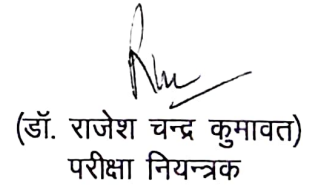 (डॉ. राजेश चन्द्र कुमावत)
परीक्षा नियन्त्रक